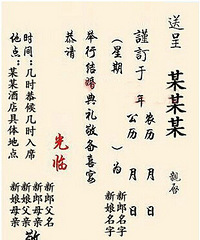 送呈
某某某
親啓
謹訂于 年 农历 月 日
公历 月 日
（星期 ）为
新郎名字
新娘名字
举行结婚典礼敬备喜宴
恭请
光临
新郎父名
新郎母亲
新娘父亲
新娘母亲
敬
时间：几时恭候几时入席
地点：某某酒店具体地点